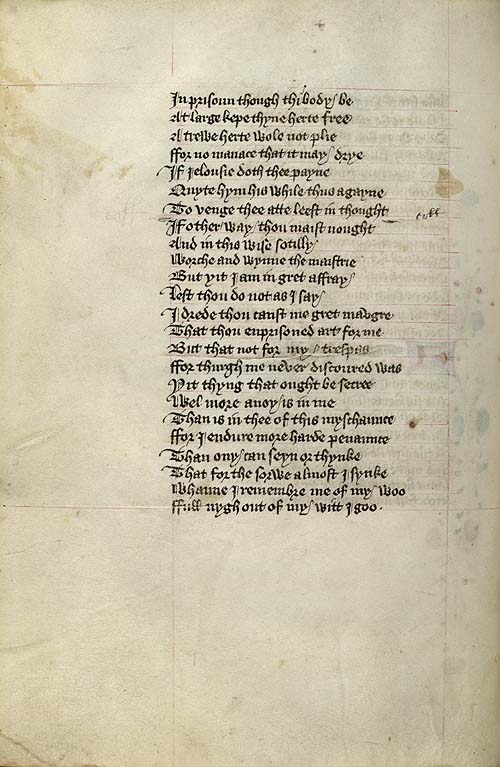 In prisoun though thi body be
At large kepe thyne herte free
A trewe herte wole not plie
ffor no manace that it may drye
If Ielousie doth thee payne
Quyte hym his while thus agayne
To venge thee atte leest in thought
If other way thou maist nought
And in this wise sotilly
Worche and wynne the maistrie
But yit I am in gret affray
Lest thou do not as I say
I drede thou canst me gret maugre
That thou enprisoned art for me
But that not for my trespas
ffor thurgh me neuer discoured was
Yit thyng that ought be secree
Wel more anoy is in me
Than is in thee of this myschaunce
ffor I endure more harde penaunce
Than ony can seyn or thynke
That for the sorwe almost I synke
Whanne I remembre me of my woo
ffull nygh out of my witt I goo.